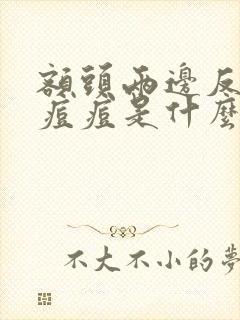 額頭兩邊反
痘痘是什麼
不大不小的夢